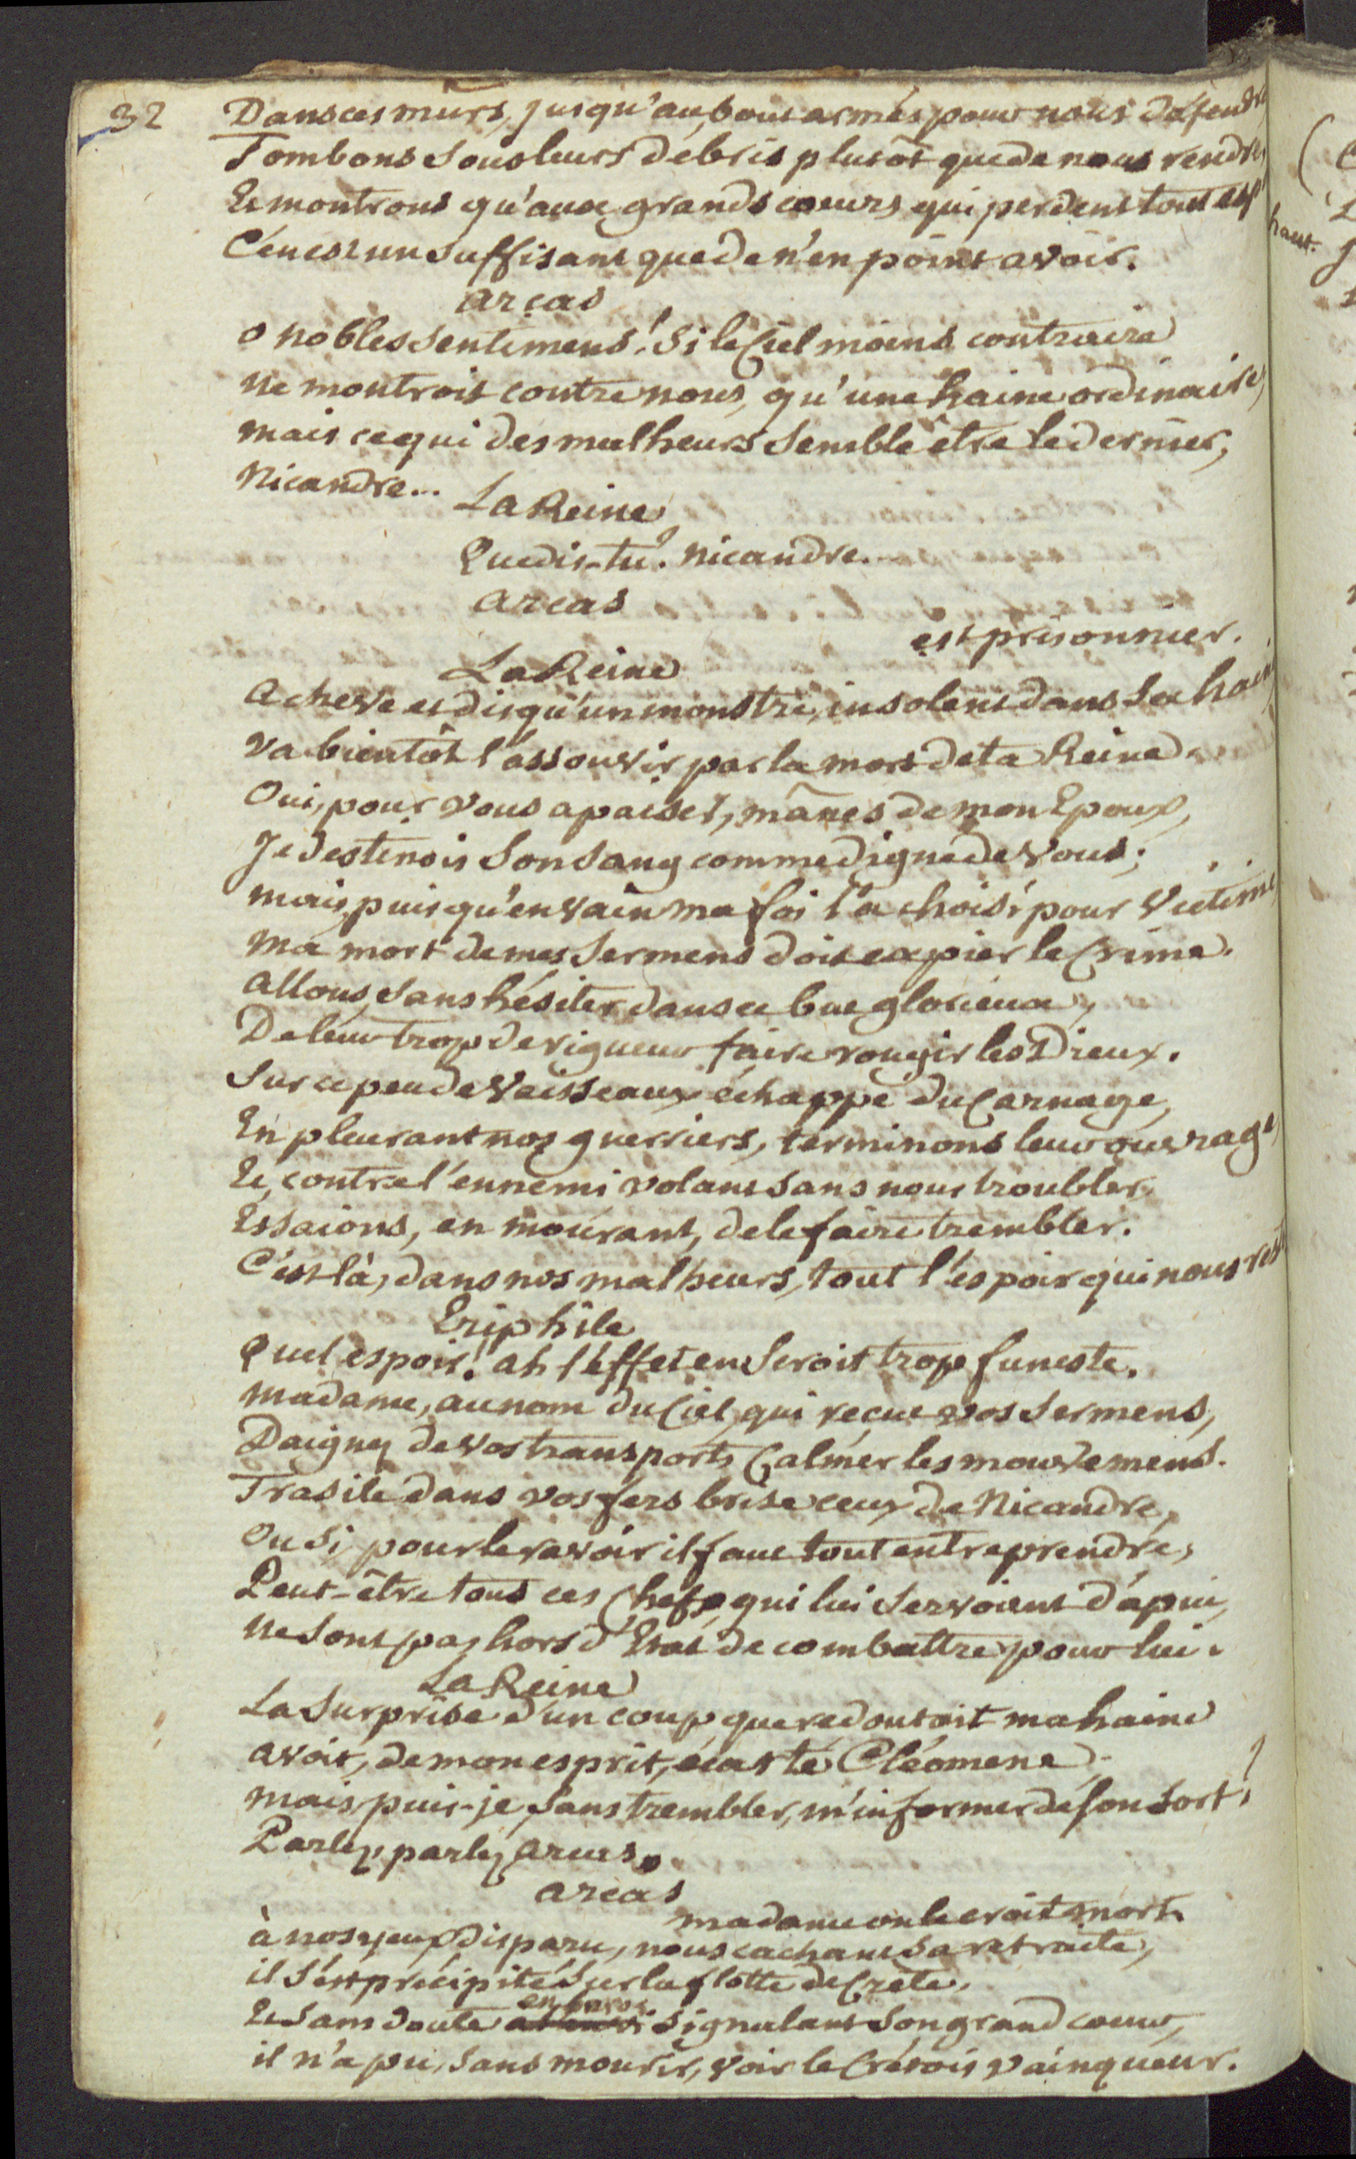 32
Dans ces murs, jusqu'au bout armés pour nous défendre
Tombons sous leurs debris plutôt que de nous rendre,
Et montrons qu'aux grands coeurs qui perdent tout esp
C'en est un suffisant que de n'en point avoir.
Arcas
O nobles sentimens! Si le Ciel moins contraire
Ne montroit contre nous, qu'une haine ordinaire,
Mais ce qui des malheurs semble être le dernier,
Nicandre...
La Reine
Que dis-tu? Nicandre...
Arcas
est prisonnier.
La Reine
Acheve et dis qu'un monstre, insolent dans sa hain
Va bientôt l'assouvir par la mort de ta Reine.
Oui, pour vous apaiser, mânes de mon Epoux,
Je destinois son sang comme digne de vous;
Mais, puisqu'en vain ma foi l'a choisi pour victime
Ma mort de mes sermens doit expier le Crime.
Allons, sans hésiter dans ce but glorieux,
De leur trop de rigueur faire rougir les Dieux.
Sur ce peu de Vaisseaux échappé du Carnage,
En pleurant nos guerriers, terminons leur ouvrage,
Et, contre l'ennemi volant sans nous troubler,
Essaions, en mourant, de le faire trembler.
C'est là, dans nos malheurs, tout l'espoir qui nous rest
Eriphile
Quel espoir! ah l'effet en seroit trop funeste.
Madame, au nom du Ciel, qui reçut vos sermens,
Daignez de vos transports Calmer les mouvemens.
Trasile dans vos fers brise ceux de Nicandre,
Ou si, pour le ravoir il faut tout entreprendre,
Peut-être tous ces Chefs, qui lui servoient d'apui,
Ne sont pas hors d'Etat de combattre pour lui.
La Reine
La Surprise d'un coup que redoutoit ma haine
Avoit, de mon esprit, écarté Cléomene.
Mais puis-je, sans trembler, m'informer de son sort?
Parlez, parlez Arcas.
Arcas
Madame on le croit mort.
à nos yeux disparu, nous cachant sa retraite,
il s'est précipité sur la flotte de Crete,
en heros
Et sans doute signalant son grand coeur,
il n'a pu, sans mourir, voir le Crétois vainqueur.
haut.